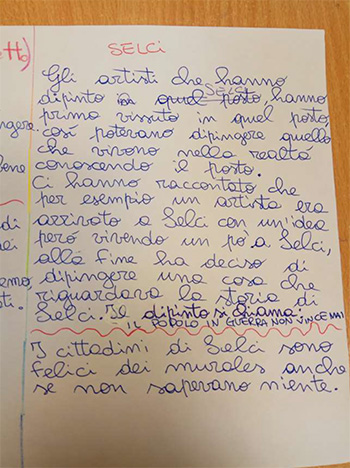 SELCI
Gli artisti che hanno
SELCI
dipinto in quel posto, hanno
prima vissuto in quel posto
così potevano dipingere quello
che vivono nella realtà
conoscendo il posto.
Ci hanno raccontato che
per esempio un artista era
arrivato a Selci con un'idea
però vivendo un pò a Selci,
alla fine ha deciso di
dipingere una cosa che
riguardava la storia di
Selci. Il dipinto si chiama:
IL POPOLO IN GUERRA NON VINCE MAI
I cittadini di Selci sono
felici dei murales anche
se non sapevano niente.